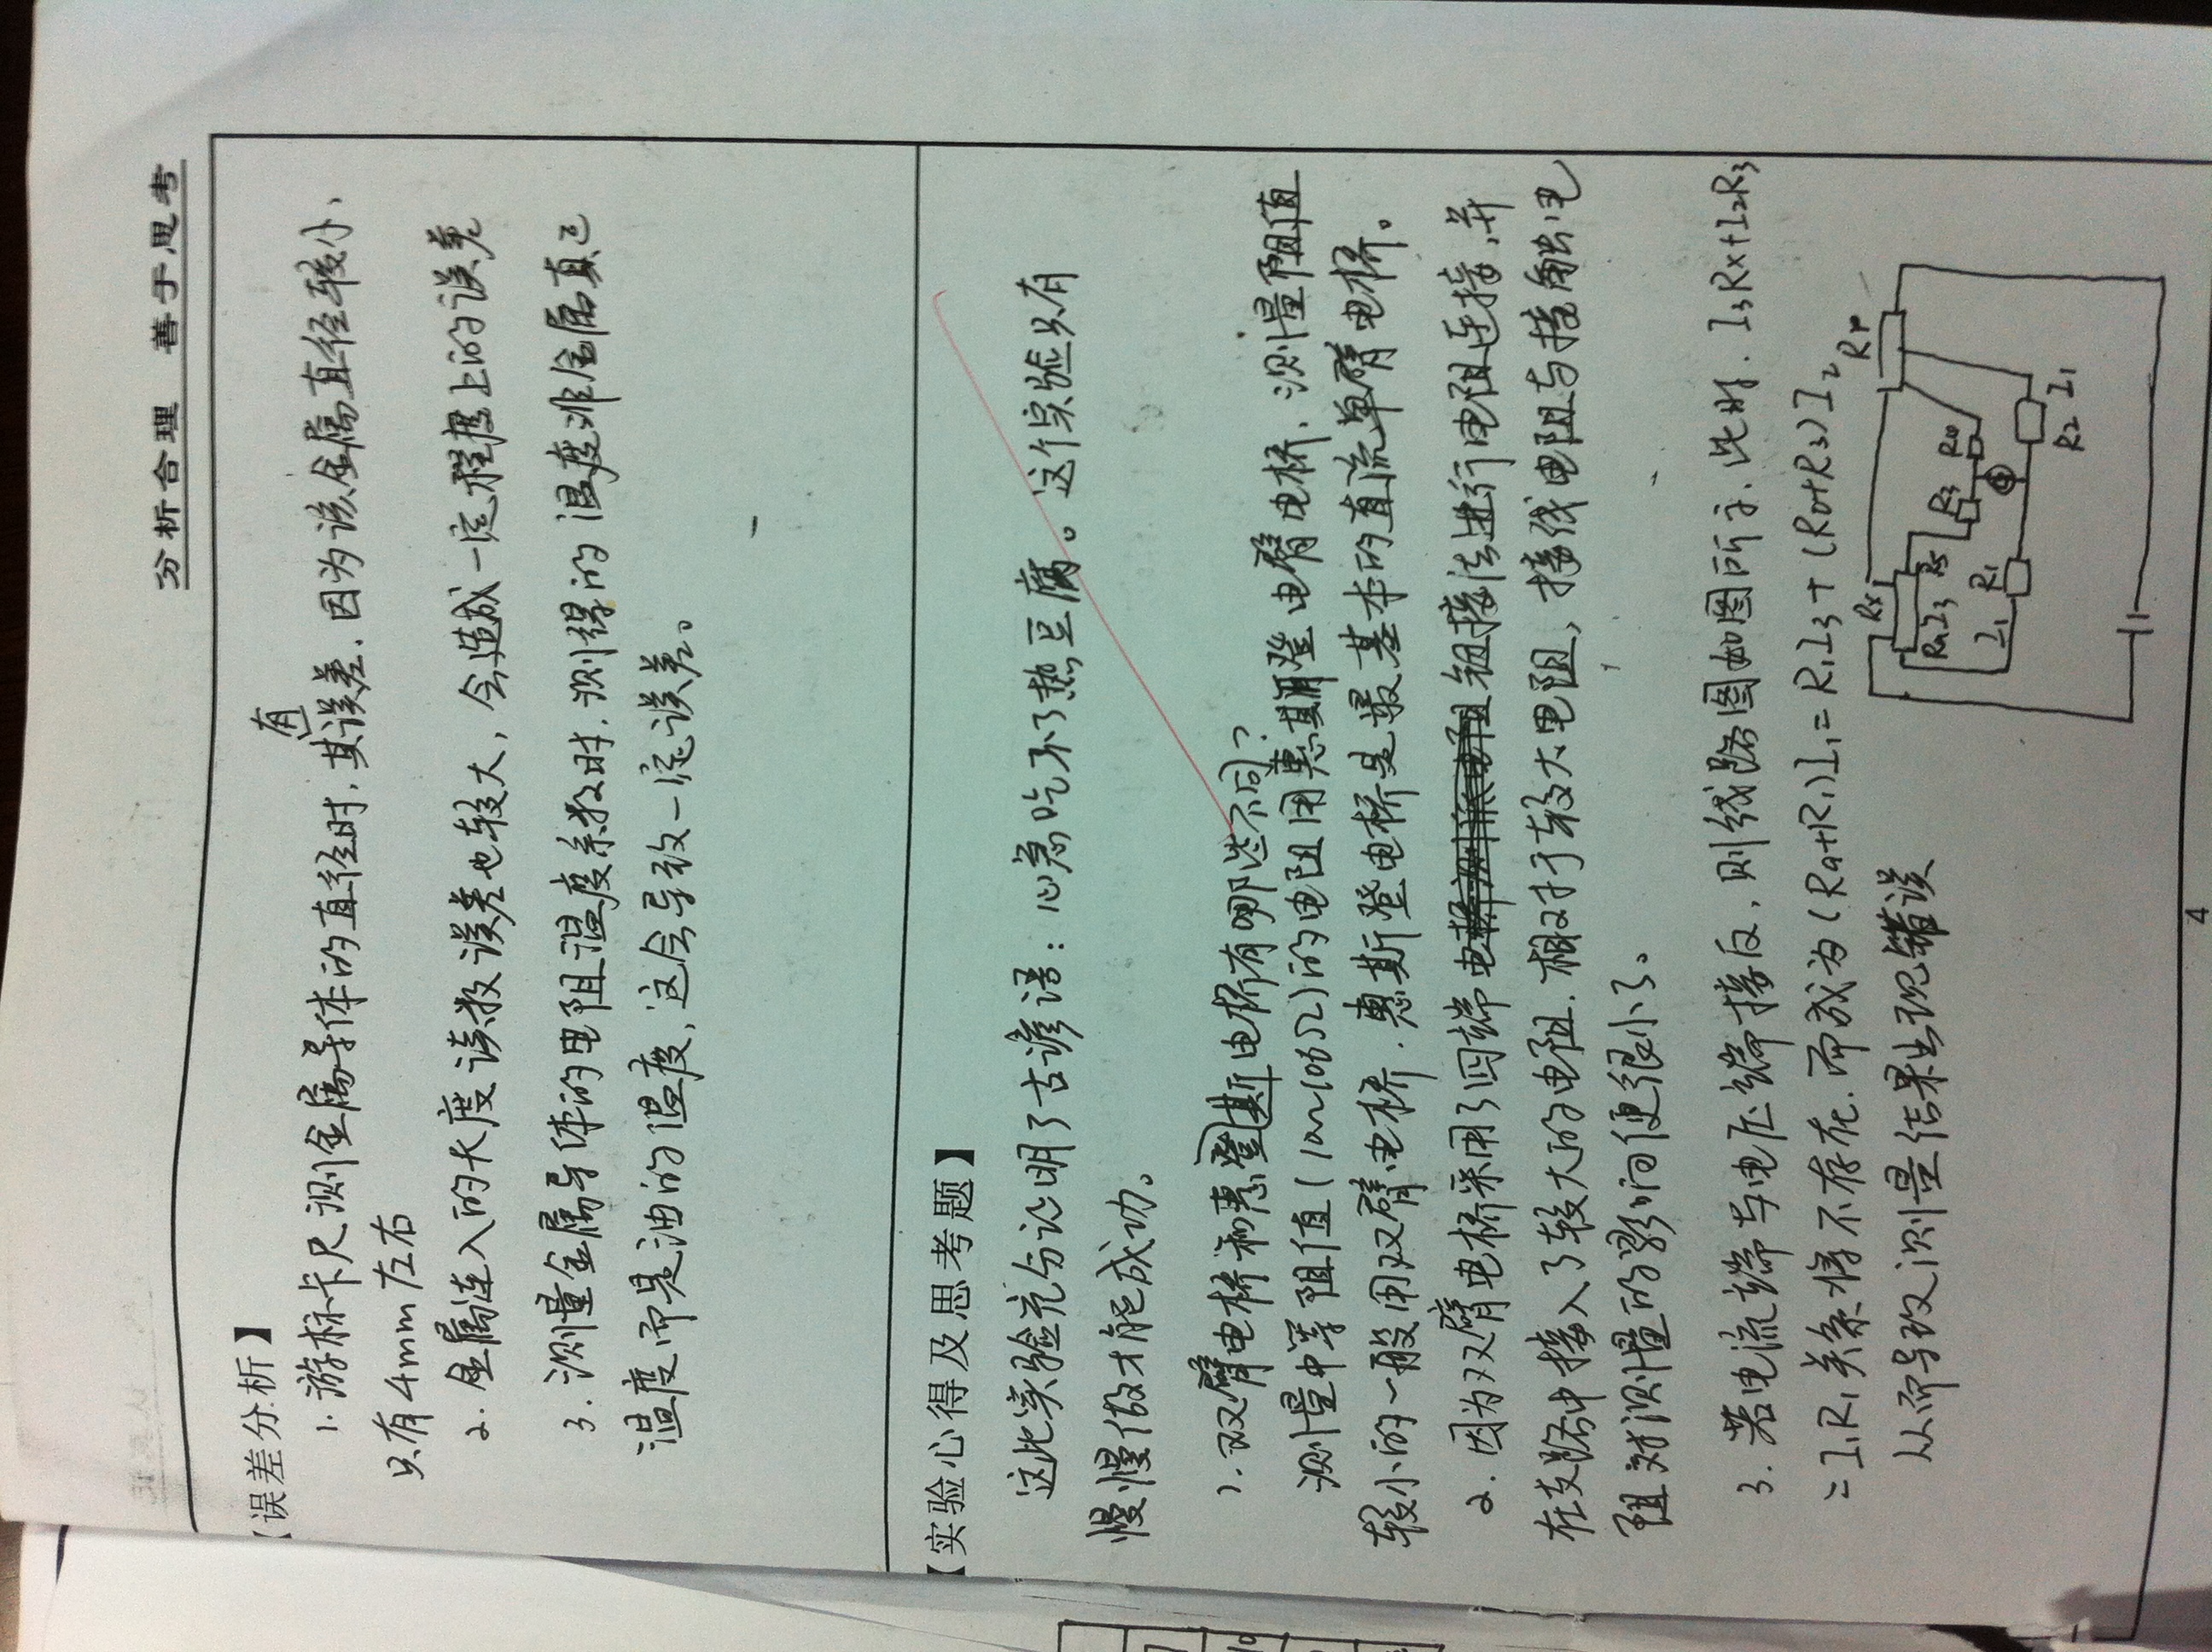 分析合理 善于思考
【误差分析】
有
1. 游标卡尺测金属导体的直径时,其误差,因为该金属直径较小,
只有4mm左右
2. 金属连入的长度读数误差也较大,会造成一定程度上的误差
3. 测量金属导体的电阻温度系数时,测得的温度非金属真正
温度而是油的温度,这会导致一定误差。
【实验心得及思考题】
这此实验充分说明了古谚语:心急吃不了热豆腐。这个实验只有
慢慢做才能成功。
1. 双臂电桥和惠登斯电桥有哪些不同?
测量中等阻值(10~106Ω)的电阻用惠斯登电臂电桥,测量阻值
较小的一般用双臂电桥,惠斯登电桥是最基本的直流单臂电桥。
2. 因为双臂电桥采用了四端 钮接法进行电阻连接,并
在支路中接入了较大的电阻,相对于较大电阻,接线电阻与接触电
阻对测量的影响便很小了。
3. 若电流端与电压端接反,则线路图如图所示,此时,I3Rx+I2R3
=I1R1关系将不存在,而成为(Ra+R1)I1=R1I3+(R0+R3)I2
从而导致测量结果出现错误
Rx Rr
Ra I3 R5 R3 R4
I1 R1 G
R2 I1
4